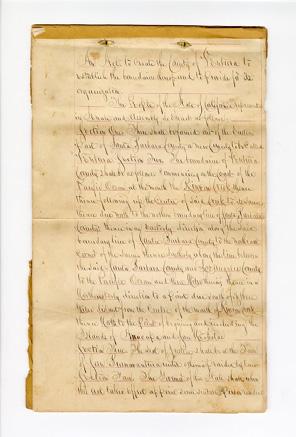 An Act to Create the County of Ventura to
establish the boundaries thereof and to provide for its
organization.
The People of the State of California represented
in Senate and Assembly do enact as follows:
Section One There shall be formed out of the Eastern
part of Santa Barbara County a new County to be called
Ventura. Section Two. The boundaries of Ventura
County shall be as follows Commencing on the coast of the
Pacific Ocean at the mouth the Rincon Creek thence
following up the centre of said creek to its source
thence due north to the northern boundary line of Santa Barbara
County thence in an easterly direction along the said
boundary line of Santa Barbara County to the north east
corner of the same thence Southerly along the line between
the said Santa Barbara County and Los Angeles County
to the Pacific Ocean and three miles therein thence in a
direction to a point due south of and three
miles distant from the Centre of the mouth of Rincon Creek
thence North to the Point of beginning and including the
Islands of Anacapa and San Nicholas
Section Three The seat of Justice shall be at the Town
of San Buenaventura until otherwise provided by law
Section Four. The Governor of this State shall when
this act takes effect